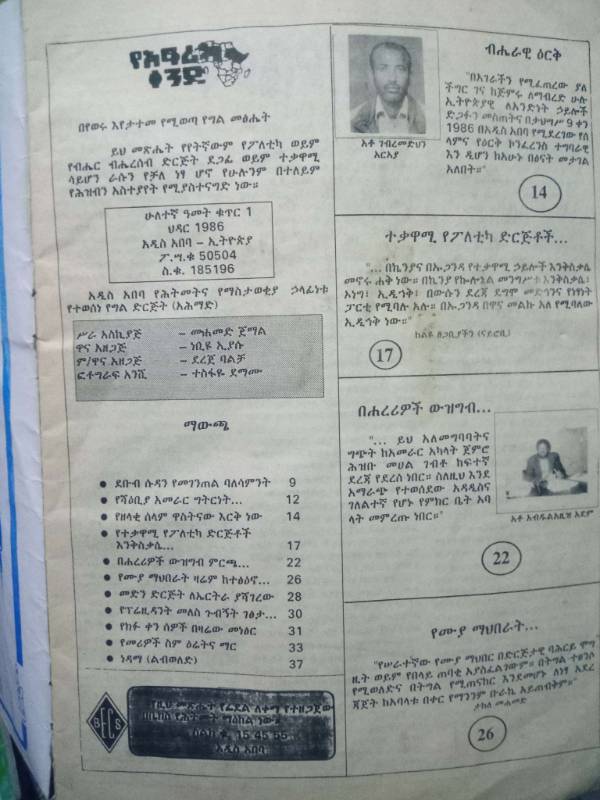 የአፍሪካ
ቀንድ
በየወሩ እየታተመ የሚወጣ የግል መፅሔት
ይህ መጽሔት የየትኛውም የፖለቲካ ወይም
የብሔር ብሔረሰብ ድርጅት ደጋፊ ወይም ተቃዋሚ
ሳይሆን ራሱን የቻለ ነፃ ሆኖ የሁሉንም በተለይም
የሕዝብን አስተያየት የሚያስተናግድ ነው።
ሁለተኛ ዓመት ቁጥር 1
ህዳር 1986
አዲስ አበባ – ኢትዮጵያ
ፖ.ሣ.ቁ 50504
ስ.ቁ. 185196
አዲስ አበባ የሕትመትና የማስታወቂያ ኃላፊነቱ
የተወሰነ የግል ድርጅት (አሕማድ)
ሥራ አስኪያጅ – መሐመድ ጀማል
ዋና አዘጋጅ – ነቢዩ ኢያሱ
ም/ዋና አዘጋጅ – ደረጀ ባልቻ
ፎቶግራፍ አንሺ – ተስፋዬ ደማሙ
ማውጫ
● ደቡብ ሱዳን የመገንጠል ባለሳምንት 9
● የሻዕቢያ አመራር ግትርነት... 12
● የዘላቂ ሰላም ዋስትናው እርቅ ነው 14
● የተቃዋሚ የፖለቲካ ድርጅቶች
እንቅስቃሴ... 17
● በሐረሪዎች ውዝግብ ምርጫ... 22
● የሙያ ማህበራት ዛሬም ከተፅዕኖ... 26
● መድን ድርጅት ለኤርትራ ያሻገረው 28
● የፕሬዚዳንት መለስ ጉብኝት ገፅታ... 30
● የክፉ ቀን ሰዎች በዛሬው መነፅር 31
● የመሪዎች ስም ዕሬትና ማር 33
● ነዳማ (ልብወለድ) 37
BECS
የዚህ መጽሔት የፊደል ለቀማ የተዘጋጀው
የሕትመት ማዕከል ነው።
ስልክ ቁ. 15 45 55
አዲስ አበባ
ብሔራዊ ዕርቅ
"በአገራችን የሚፈጠረው ያለ
ችግር ገና ከጅምሩ ለማብረድ ሁሉ
ኢትዮጵያዊ ለአንድነት ኃይሎች
ድጋፉን መስጠትና በታህሣሥ 9 ቀን
1986 በአዲስ አበባ የሚደረገው የሰ
ላምና የዕርቅ ኮንፈረንስ ተግባራዊ
እን ዲሆን ከአሁኑ በፅናት መታገል
አለበት።"
አቶ ገብረመድህን
አርአያ
14
ተቃዋሚ የፖለቲካ ድርጅቶች...
"... በኬንያና በኡጋንዳ የተቃዋሚ ኃይሎች እንቅስቃሴ
መኖሩ ሐቅ ነው። በኬንያ የኮሎኔል መንግሥቱ እንቅስቃሴ፣
ኦነግ፣ ኢዲኅግ፣ በውሱን ደረጃ ደግሞ መድኅንና የነፃነት
ፓርቲ የሚባሉ አሉ። በኡጋንዳ በዋና መልኩ አለ የሚባለው
ኢዲኅግ ነው።"
ከልዩ ዘጋቢያችን (ናይሮቢ)
17
በሐረሪዎች ውዝግብ...
"... ይህ አለመግባባትና
ግጭት ከአመራር አካላት ጀምሮ
ሕዝቡ መሀል ገብቶ ከፍተኛ
ደረጃ የደረሰ ነበር። ስለዚህ እንደ
አማራጭ የተወሰደው አዳዲስና
ገለልተኛ የሆኑ የምክር ቤት አባ
ላት መምረጡ ነበር።"
አቶ አብዱልአዚዝ አደም
22
የሙያ ማህበራት...
"የሠራተኛው የሙያ ማህበር በድርጅታዊ ባሕርይ ሞግ
ዚት ወይም የበላይ ጠባቂ አያስፈልገውም። በትግል ተፀንሶ
የሚወለድና በትግል የሚጠናከር እንደመሆኑ ለነፃ አደረ
ጃጀት ከአባላቱ በቀር የማንንም ቡራኬ አይጠብቅም።"
ታከለ መሐመድ
26